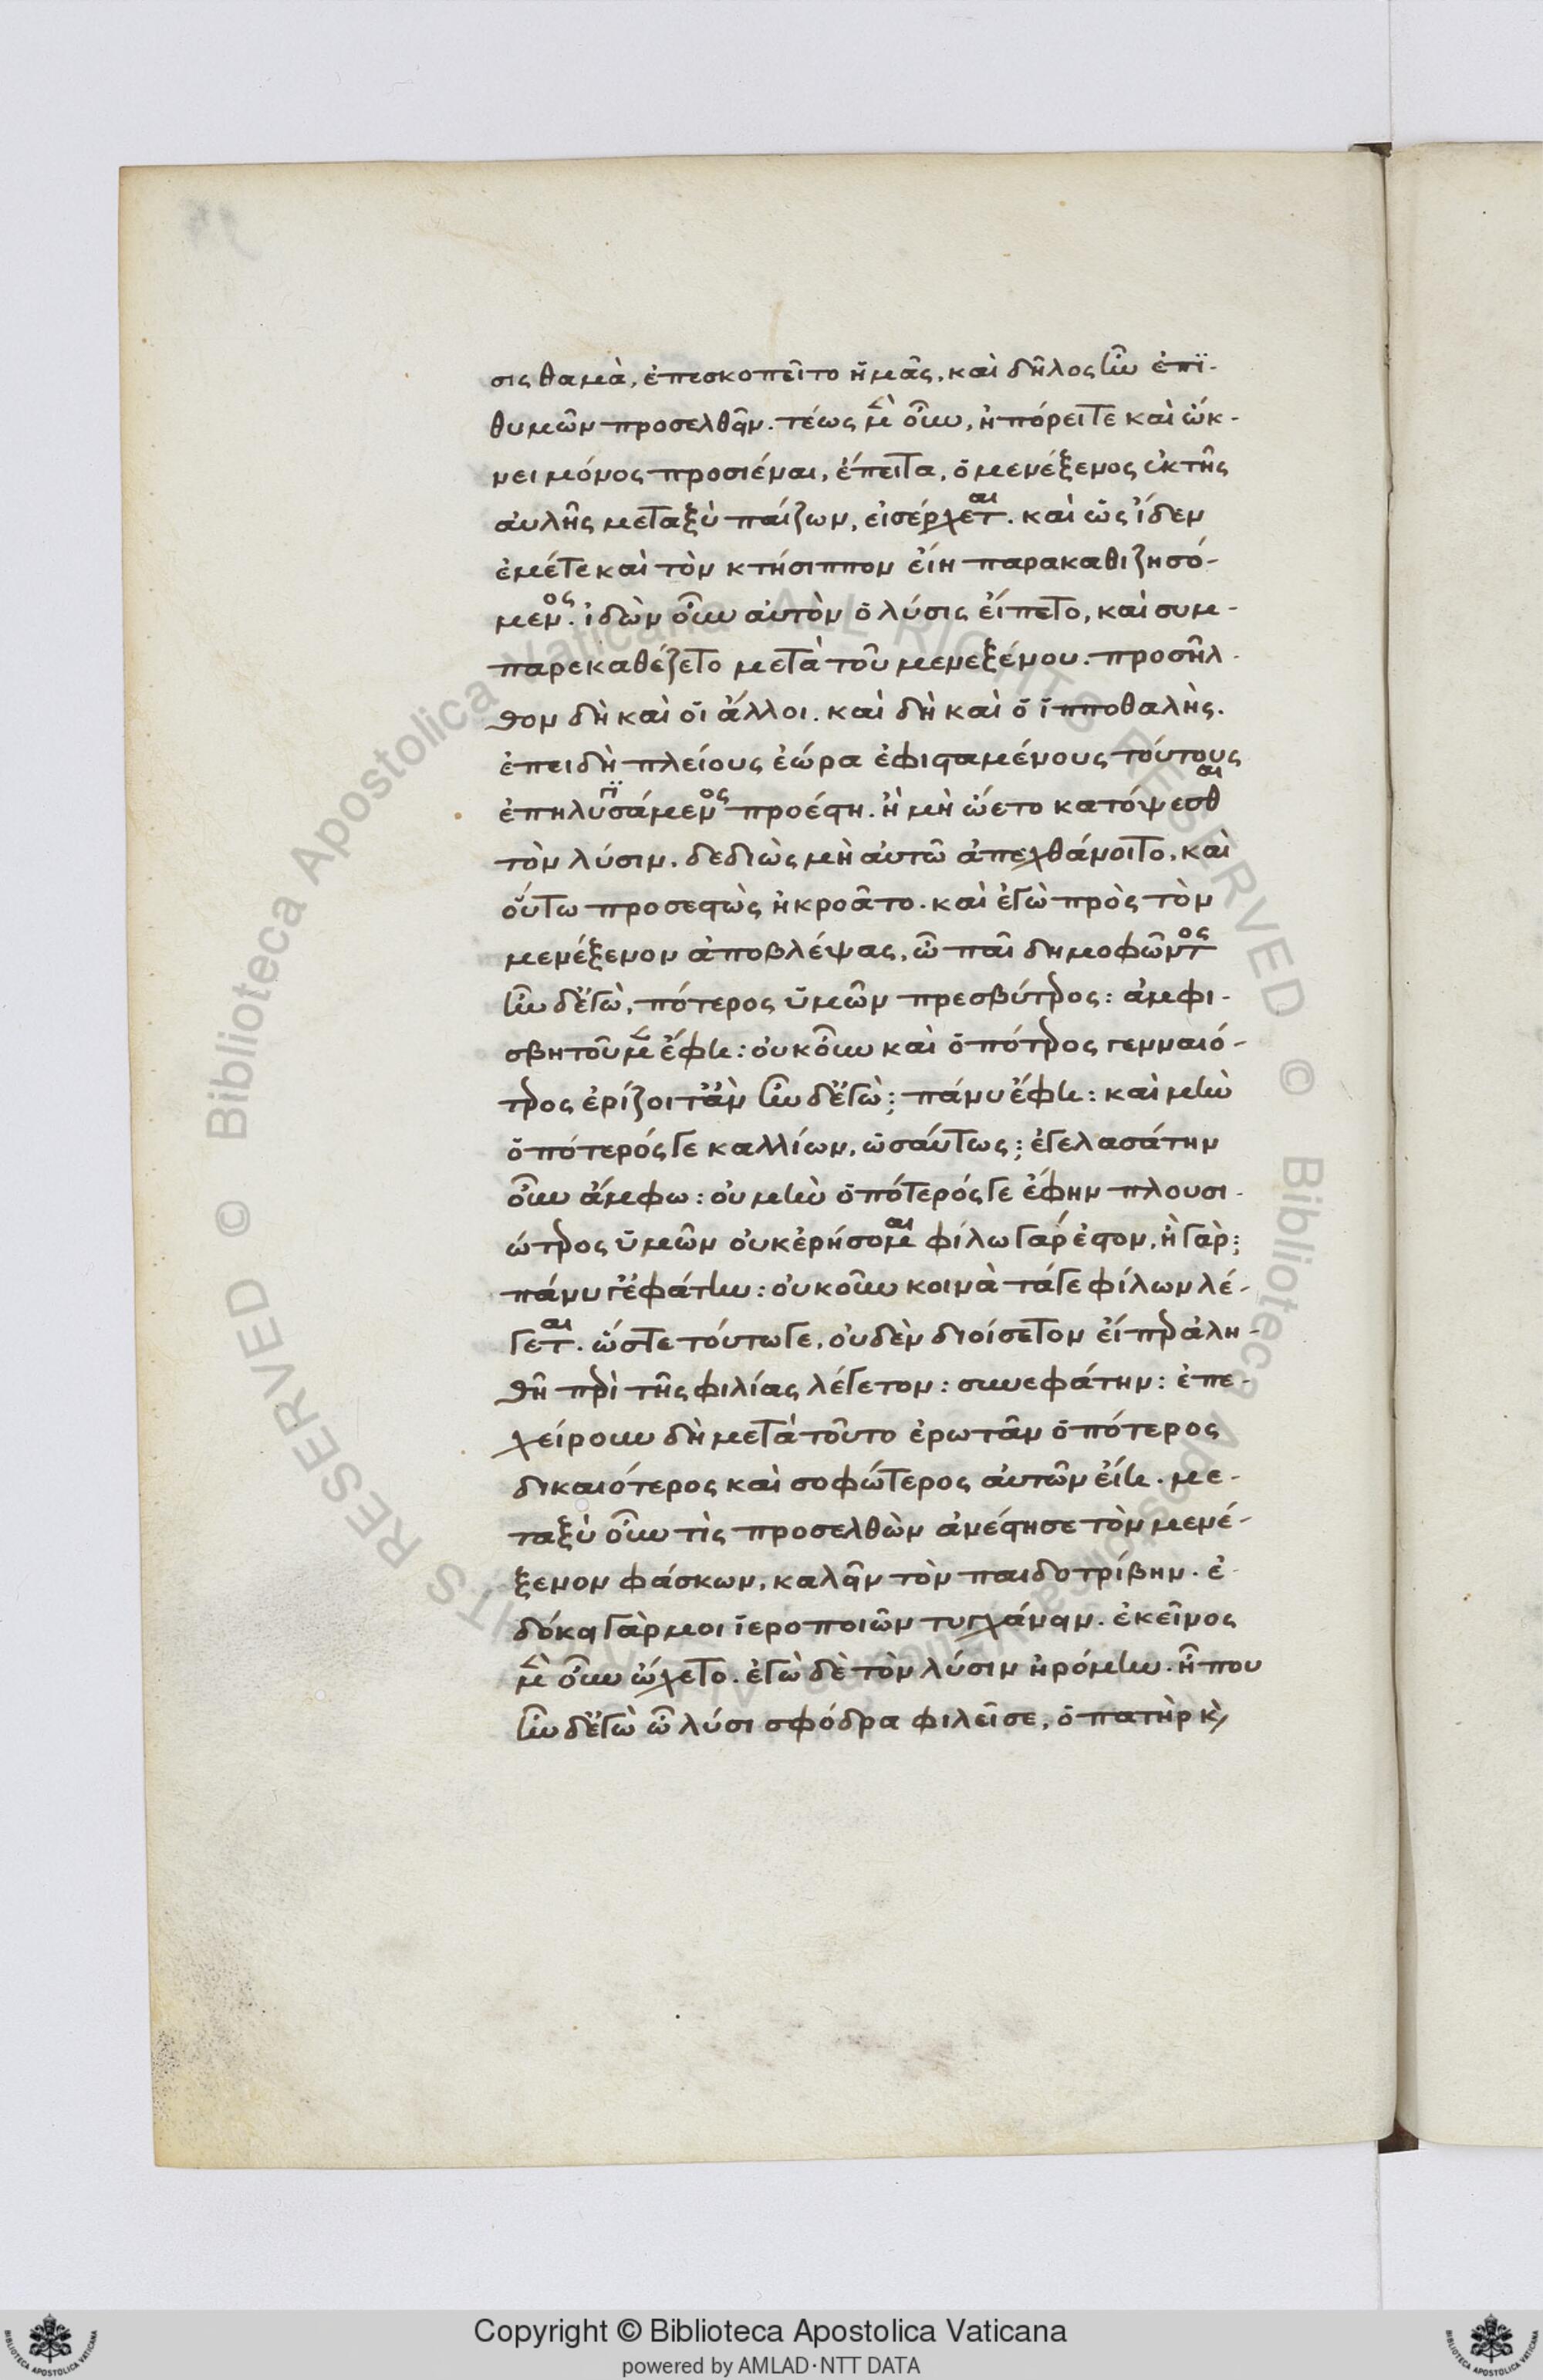 σις θαμὰ, ἐπεσκοπεῖτο ἡμᾶς. καὶ δῆλος ἦν ἐπϊ-
θυμῶν προσελθεῖν. τέως μ̅ὲ οὖν, ἠπόρειτε καὶ ὤκ-
νει μόνος προσιέναι, ἔπειτα, ὁ μενέξενος ἐκ τῆς
αὐλῆς μεταξὺ παίζων, εἰσέρχεται. καὶ ὡς ἴδεν
ἐμέτε καὶ τὸν κτήσιππον εἴη παρακαθιζησό-
μενος. ἰδὼν οὖν αὐτὸν ὁ λύσις εἵπετο, καὶ συμ-
παρεκαθέζετο μετὰ τοῦ μενεξένου. προσῆλ-
θον δὴ καὶ οἱ ἄλλοι. καὶ δὴ καὶ ὁ ἱπποθαλὴς.
ἐπειδὴ πλείους ἑώρα ἐφισταμένους τούτους
ἐπηλυσάμενος προέστη. ἧ μὴ ᾤετο κατόψεσθαι
τὸν λύσιν. δεδιὼς μὴ αὐτῶ ἀπεχθάνοιτο. καὶ
οὕτω προσεστὼς ἠκροᾶτο. καὶ ἐγὼ πρὸς τὸν
μενέξενον ἀποβλέψας, ὦ παῖ δημοφῶντος
ἦν δ' ἐγὼ, πότερος ὑμῶν πρεσβύτερος: ἀμφι-
σβητοῦμεν ἔφη: οὐκοῦν καὶ ὁπότερος γενναιό-
τερος ἐρίζοιτ' ἂν ἦν δ' ἐγὼ; πάνυ ἔφη: καὶ μὴν
ὁπότερός γε καλλίων. ὡσαύτως; ἐγελασάτην
οὖν ἄμφω: οὐ μὴν ὁπότερός γε ἔφην πλουσι-
ώτερος ὑμῶν οὐκ ἐρήσομαι φίλω γάρ ἐστον. ἢ γὰρ;
πάνυ γ' ἐφάτην: οὐκοῦν κοινὰ τά γε φίλων λέ-
γεται. ὥστε τούτω γε. οὐδὲν διοίσετον εἴπερ ἀλη-
θῆ περὶ τῆς φιλίας λέγετον: συνεφάτην: ἐπε-
χείρουν δὴ μετὰ τοῦτο ἐρωτᾶν ὁπότερος
δικαιότερος καὶ σοφώτερος αὐτῶν εἴη. με-
ταξὺ οὖν τὶς προσελθὼν ἀνέστησε τὸν μενέ-
ξενον φάσκων, καλεῖν τὸν παιδοτρίβην. ἐ-
δόκει γὰρ μοι ἱεροποιῶν τυγχάνειν. ἐκεῖνος
μ̅ὲ οὖν ᾤχετο. ἐγὼ δὲ τὸν λύσιν ἠρόμην. ἦ που
ἦν δ' ἐγὼ ὦ λύσι σφόδρα φιλεῖ σε, ὁ πατὴρ κ̀